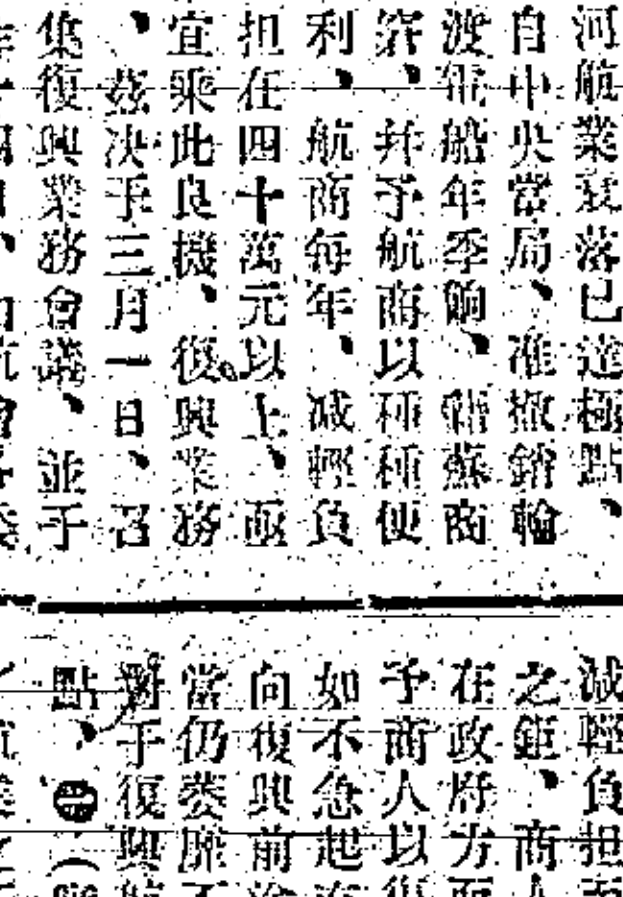 河航業衰落已達極點、
自中央當局、准撤銷輪
渡電船年季餉、藉蘇商
窘、幷予航商以種種便
利、航商每年、減輕負
担在四十萬元以上、亟
宜乘此良機、復興業務
、茲決于三月一日、召
集復興業務會議、並于
減輕負担
之鉅、商人
在政府方面
予商人以
如不急起
向復興前
當仍萎靡不
對于復興航
點、㊁(